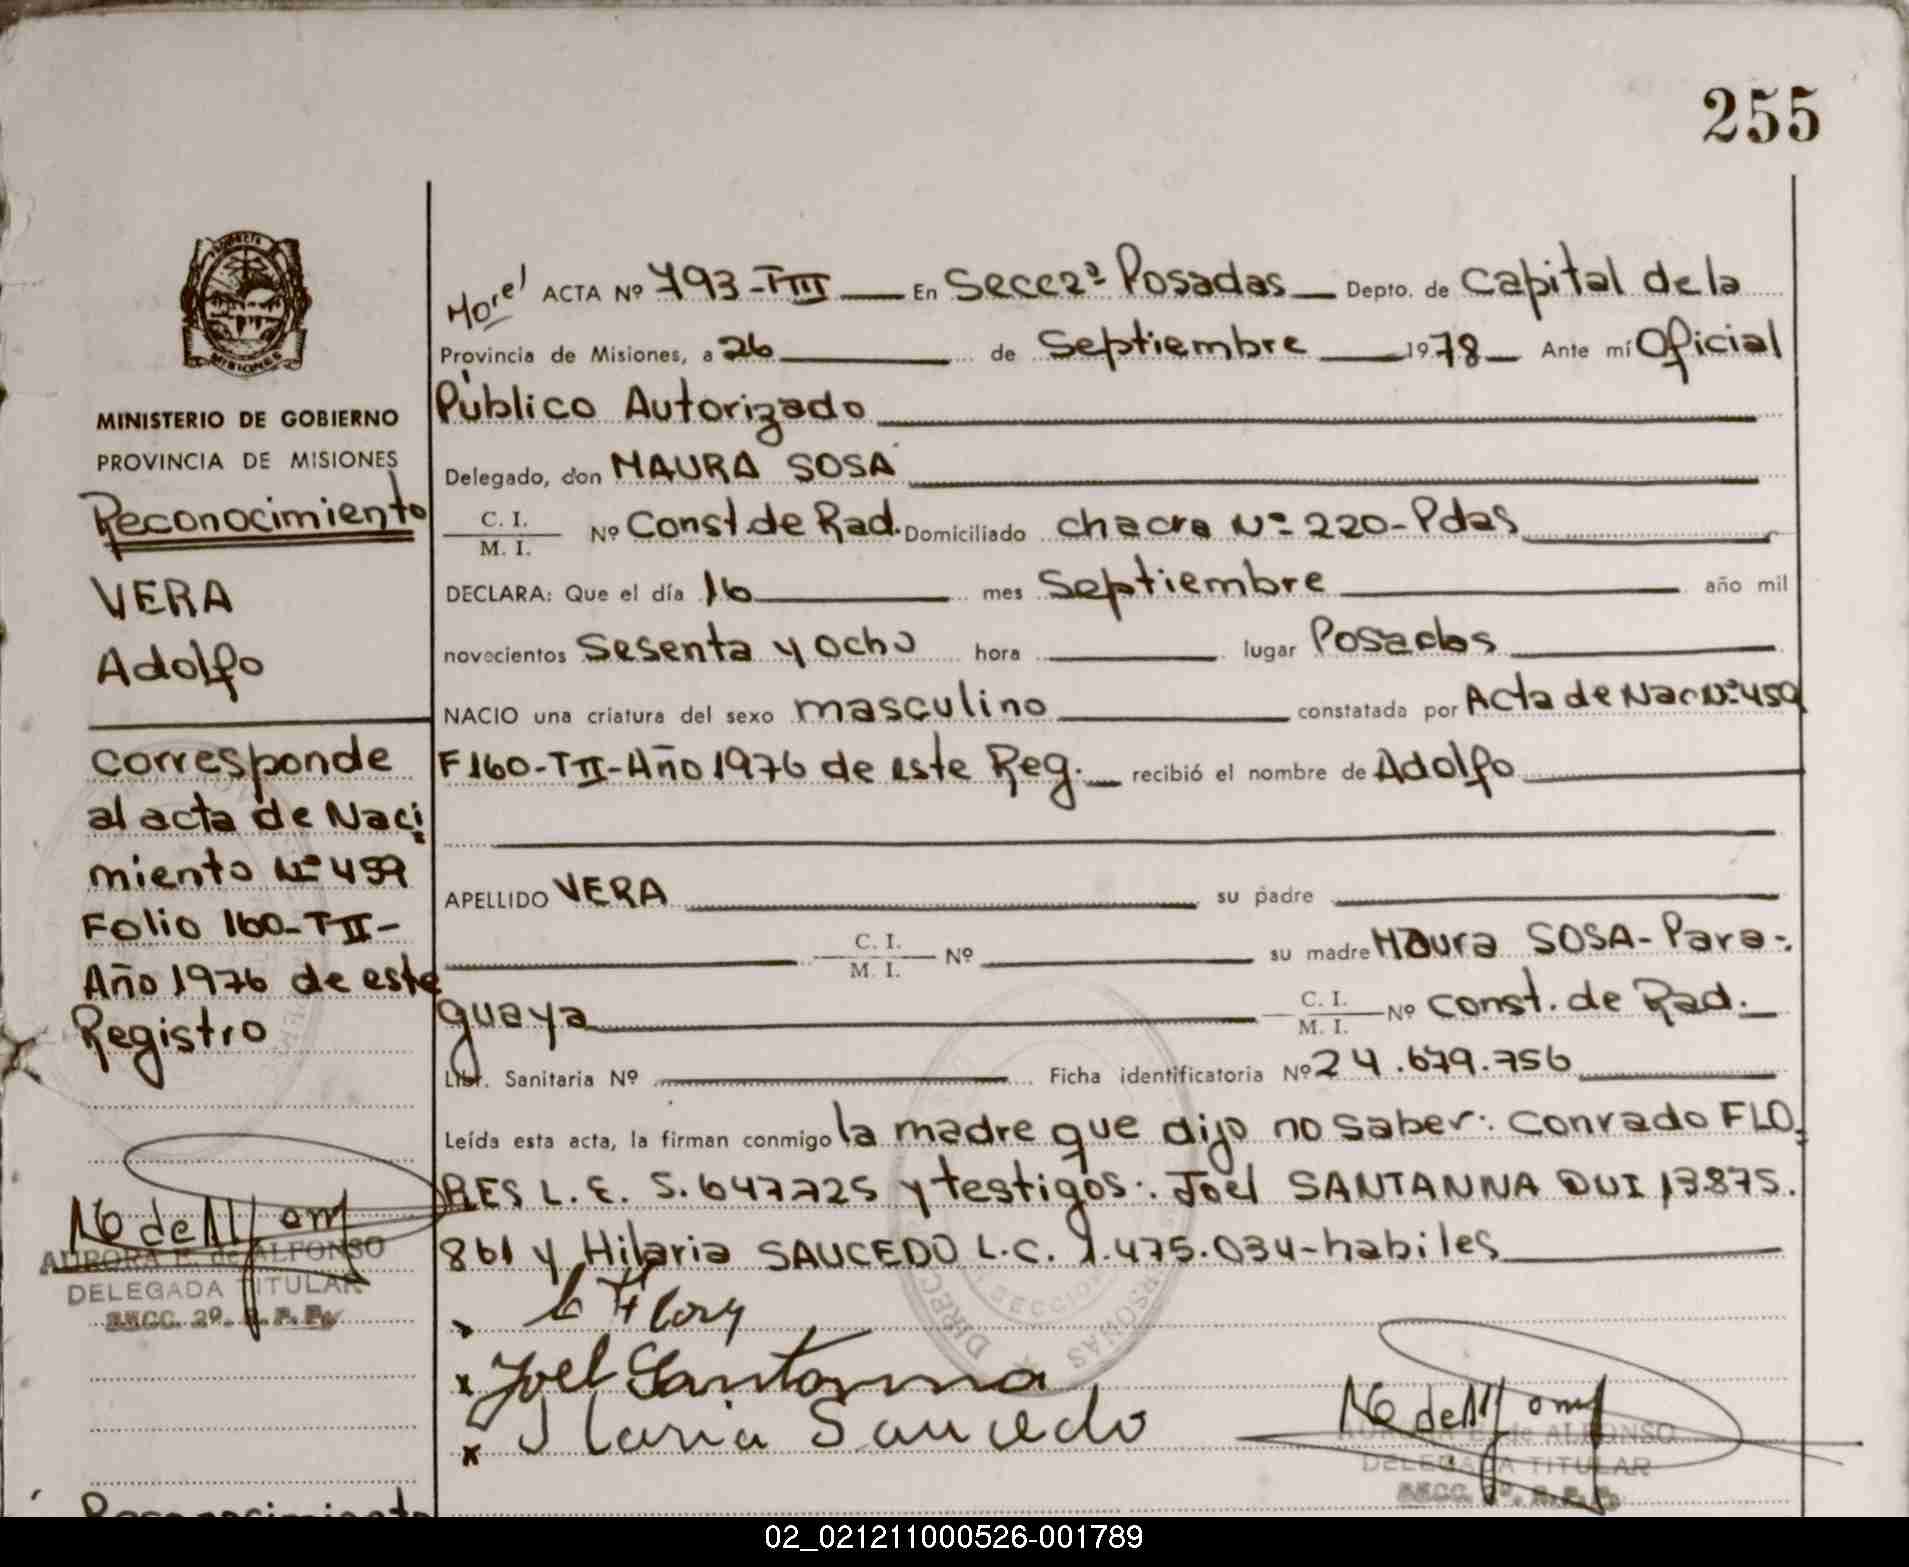 255
MINISTERIO DE GOBIERNO
PROVINCIA DE MISIONES
Reconocimiento
VERA
Adolfo
corresponde
al acta de Naci
miento Nº 459
Folio 160-TII-
Año 1976 de este
Registro
AURORA E. de ALFONSO
DELEGADA TITULAR
SECC. 2º.
Morel ACTA Nº 793-TIII En Secc 2ª Posadas Depto. de Capital de la
Provincia de Misiones, a 26 de Septiembre 1978 Ante mí Oficial
Público Autorizado
Delegado, don MAURA SOSA
C. I. / M. I. Nº Const. de Rad. Domiciliado chacra Nº 220-Pdas
DECLARA: Que el día 16 mes Septiembre año mil
novecientos Sesenta y ocho hora lugar Posadas
NACIO una criatura del sexo masculino constatada por Acta de Nac Nº 459
F160-TII-Año 1976 de este Reg. recibió el nombre de Adolfo
APELLIDO VERA su padre
C. I. / M. I. Nº su madre Maura SOSA-Para-
guaya C. I. / M. I. Nº Const. de Rad.
Libr. Sanitaria Nº Ficha identificatoria Nº 24.679.756
Leída esta acta, la firman conmigo la madre que dijo no saber: Conrado FLO
RES L.E. 5.647725 y testigos: Joel SANTANNA DUI 13875.
861 y Hilaria SAUCEDO L.C. 1.475.034-habiles
x Joel Santanna
x Ilaria Saucedo
DELEGADA TITULAR
Reconocimiento
02_021211000526-001789